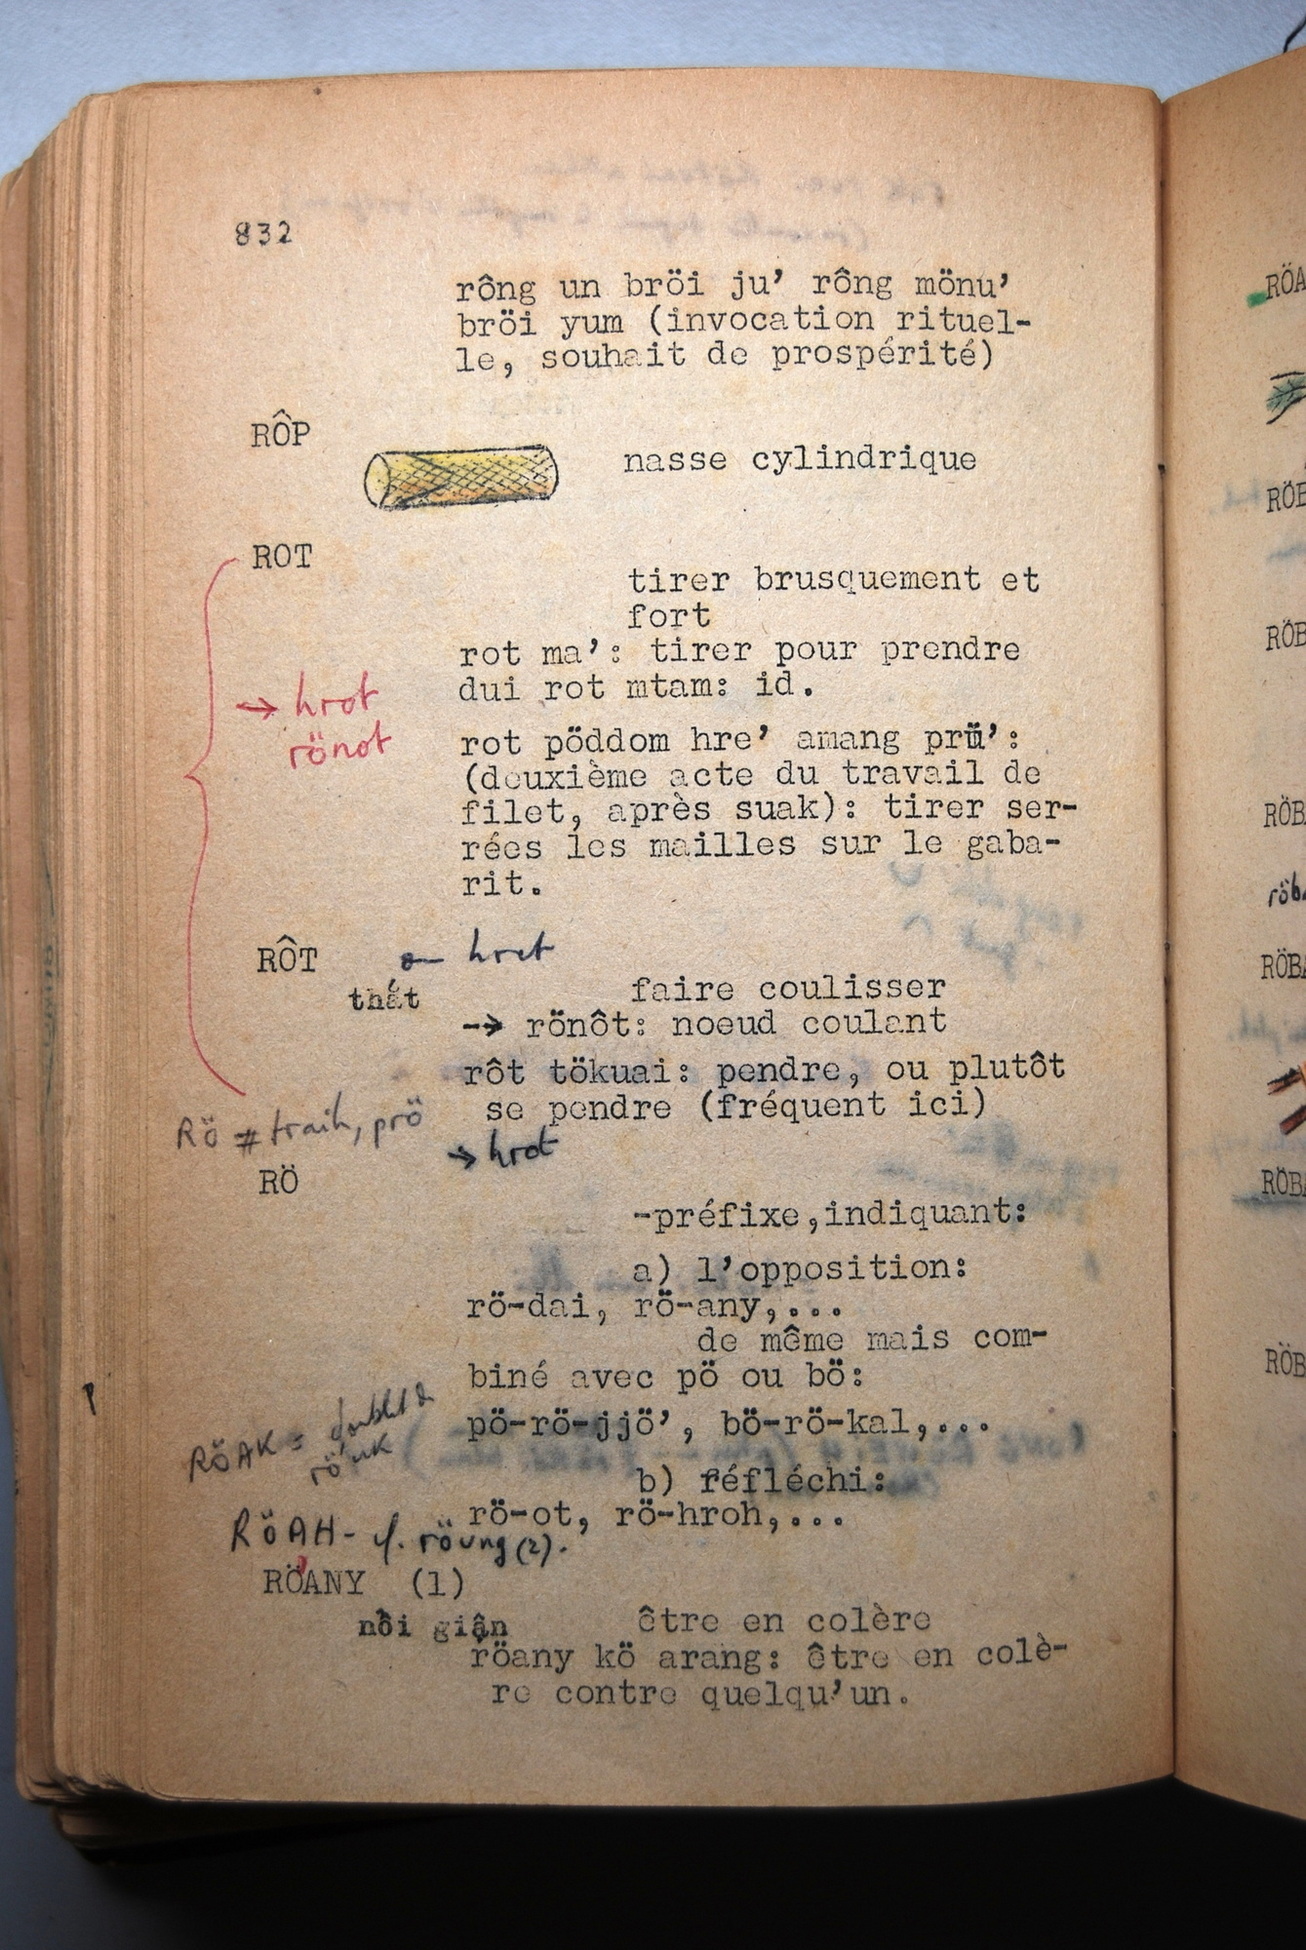 832
rông un bröi ju’ rông mönu’
bröi yum (invocation rituel-
le, souhait de prospérité)
RÔP
nasse cylindrique
ROT
tirer brusquement et
fort
rot ma’: tirer pour prendre
dui rot mtam: id.
→ hrot
rönot
rot pöddom hre’ amang prü’:
(deuxième acte du travail de
filet, après suak): tirer ser-
rées les mailles sur le gaba-
rit.
RÔT
hret
thắt
faire coulisser
→ rönôt: noeud coulant
rôt tökuai: pendre, ou plutôt
se pendre (fréquent ici)
Rö ≠ traih, prö
→ hrot
RÖ
-préfixe,indiquant:
a) l’opposition:
rö-dai, rö-any,...
de même mais com-
biné avec pö ou bö:
pö-rö-jjö’, bö-rö-kal,...
RöAK = doublet de
röuk
b) réfléchi:
rö-ot, rö-hroh,...
RöAH - cf. röung (2).
RÖANY (1)
nồi giận
être en colère
röany kö arang: être en colè-
re contre quelqu’un.
RÖA
RÖB
RÖB
RÖBA
röb
RÖBA
RÖBA
RÖB